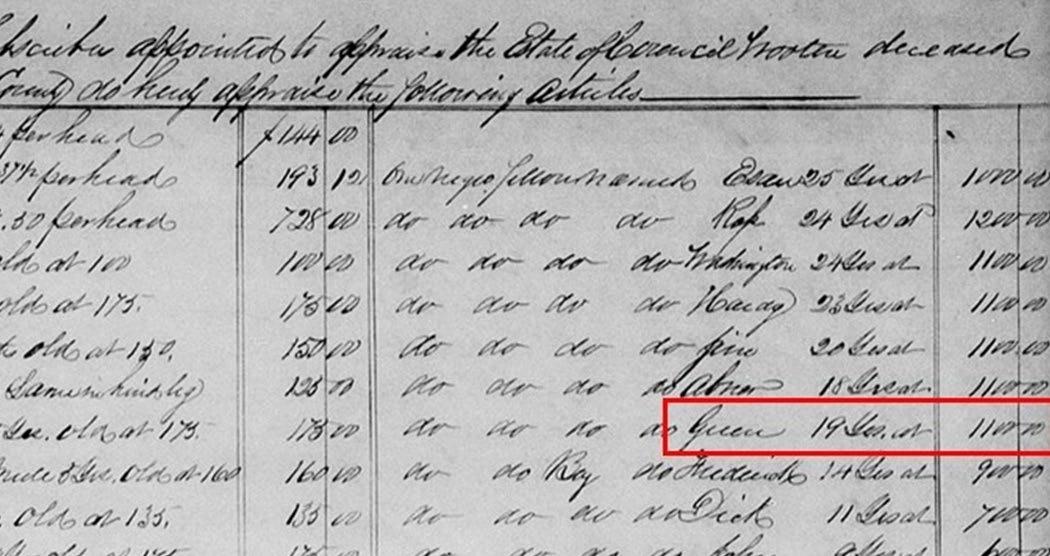 appointed to appraise the Estate of Council Wooten deceased
County do hereby appraise the following articles
perhead $144 00
37½ perhead 193 12 One Negro fellow named Esau 25 Yrs at 1000 00
.50 perhead 728 00 do do do do Rop 24 Yrs at 1200 00
old at 100 100 00 do do do do Washington 24 Yrs at 1100 00
old at 175. 175 00 do do do do Hardy 23 Yrs at 1100 00
old at 150. 150 00 do do do do 20 Yrs at 1100 00
125 00 do do do do Abner 18 Yrs at 1100 00
Yrs. old at 175. 175 00 do do do do Green 19 Yrs. at 1100 00
mule 5 Yrs. old at 160 160 00 do do Boy do Frederick 14 Yrs at 900 00
old at 135. 135 00 do do do do Dick 11 Yrs at 700 00